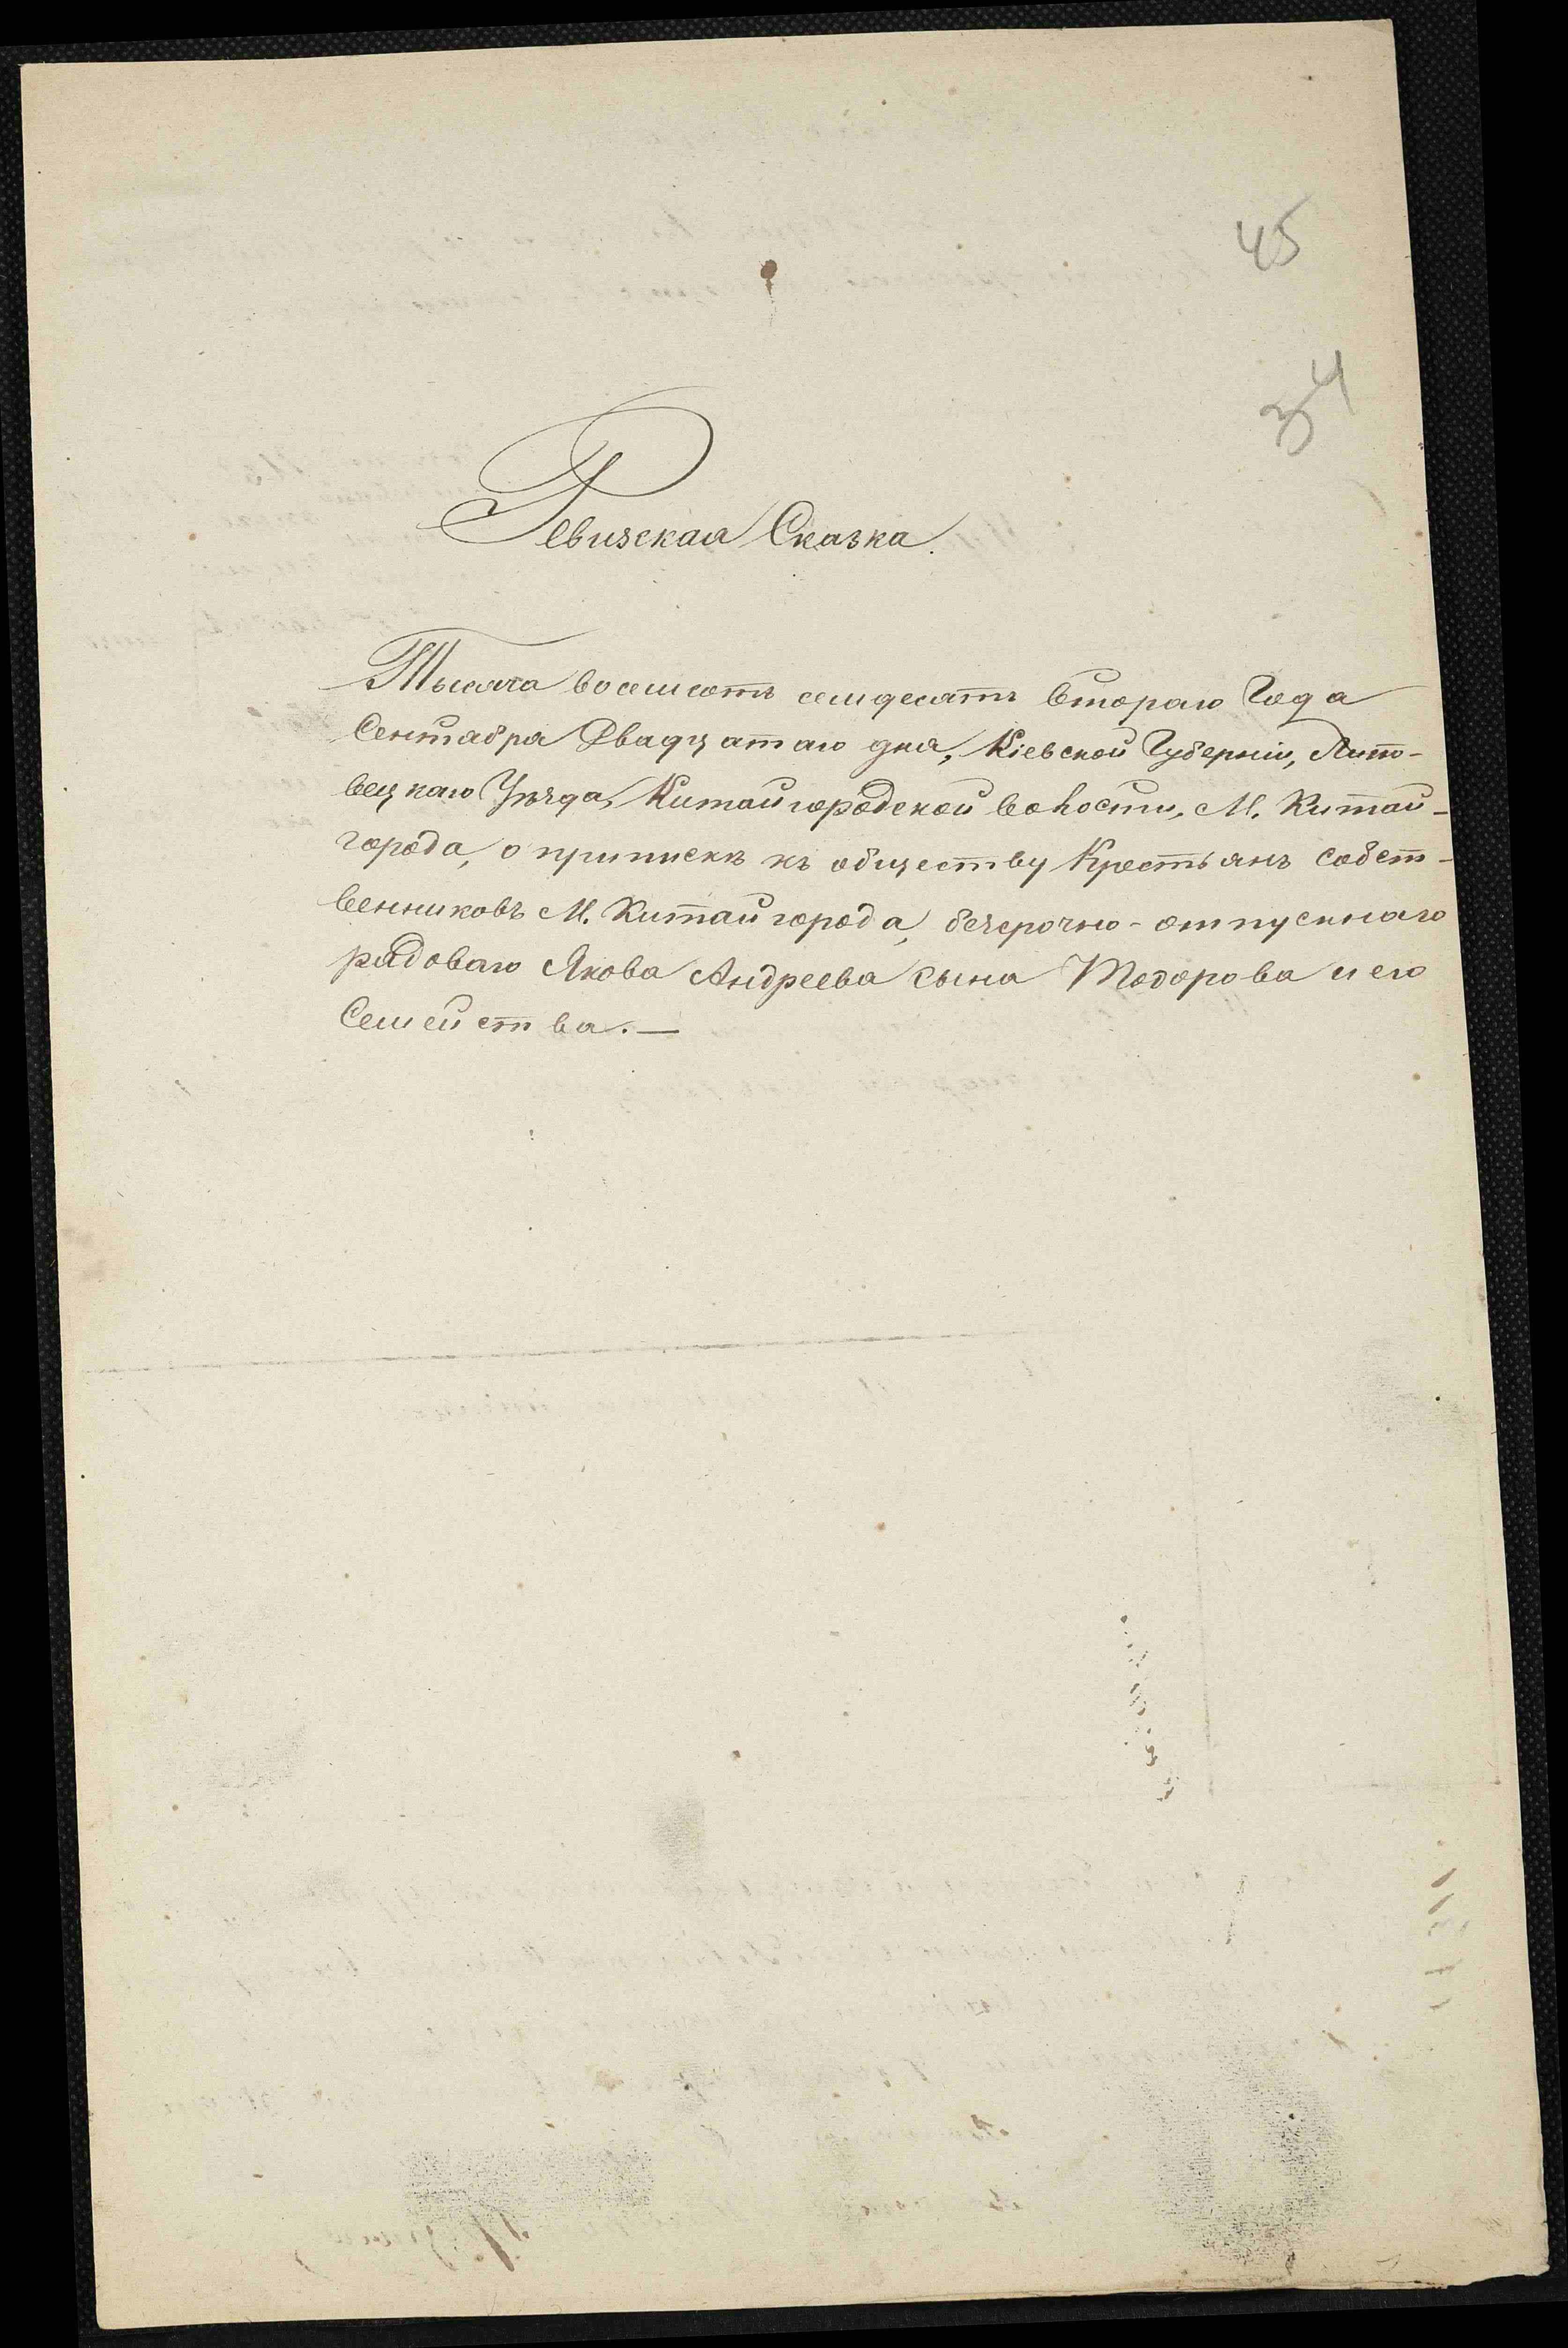 45
34
Ревизская Сказка.
Тысяча восемсотъ семдесятъ втораго Года
Сентября Двадцатаго дня, Кіевской Губерніи, Липо-
вецкаго Уѣзда, Китайгородской волости, М. Китай-
города, о припискѣ къ обществу Крестьянъ собст-
венниковъ М. Китайгорода, безсрочно-отпускнаго
рядоваго Якова Андреева сына Тодорова и его
Семейства.—